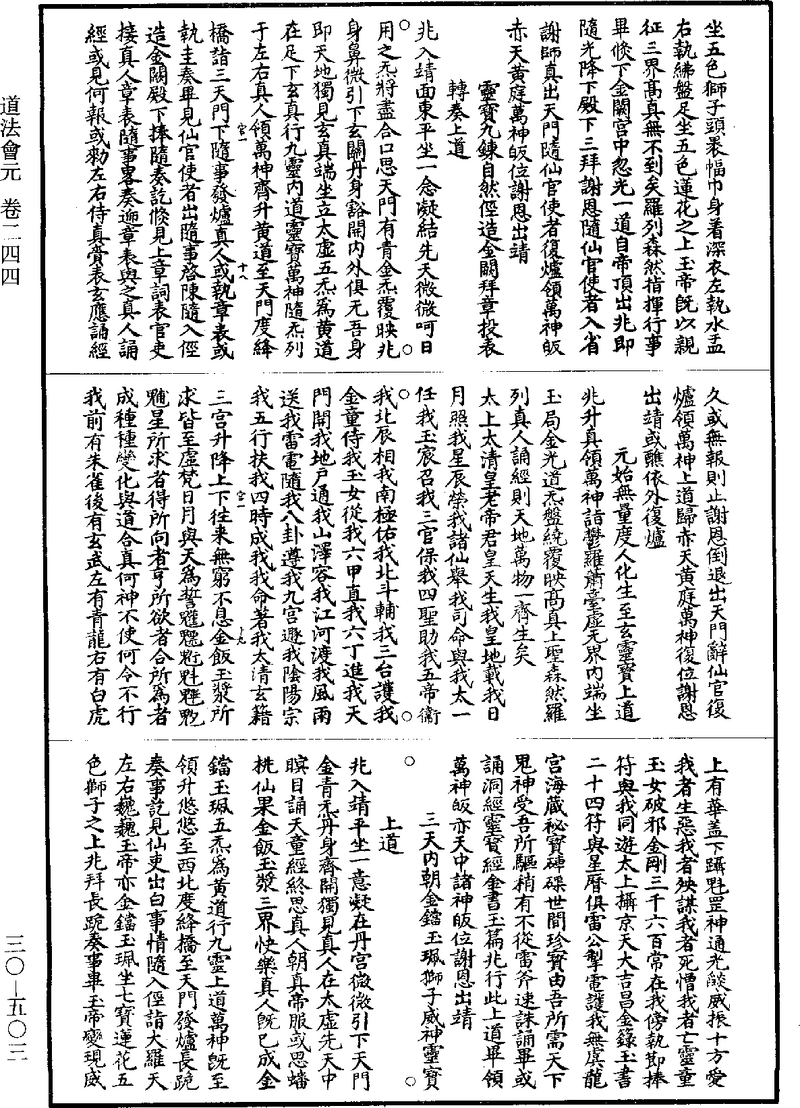 道法會元 卷二四四
坐五色獅子頭褁幅巾身着深衣左執水盂
右執綈盤足坐五色蓮花之上玉帝既以親
征三界高真無不到矣羅列森然指揮行事
畢倏下金闕宮中忽光一道自帝頂出兆即
隨光降下殿下三拜謝恩隨仙官使者入省
謝師真出天門隨仙官使者復爐領萬神皈
赤天黃庭萬神皈位謝恩出靖
靈寶九鍊自然徑造金闕拜章投表
轉奏上道
兆入靖面東平坐一念凝結先天微微呵日
用之炁將盡合口思天門有青金炁覆映兆
身鼻微引下玄關丹身豁開內外俱无吾身
即天地獨見玄真端坐立太虛五炁為黃道
在足下玄真行九靈內道靈寶萬神隨炁列
于左右真人領萬神齊升黃道至天門度絳
橋詣三天門下隨事發爐真人或執章表或
執圭奏畢見仙官使者出隨事啓陳隨入徑
造金闕殿下捧隨奏訖倏見上章詞表官吏
接真人章表隨事畧奏迎章表與之真人誦
經或見何報或勑左右侍真賞表玄應誦經
久或無報則止謝恩倒退出天門辭仙官復
爐領萬神上道歸赤天黃庭萬神復位謝恩
出靖或醮依外復爐
元始無量度人化生至玄靈寶上道
兆升真領萬神詣鬱羅蕭臺虛无界內端坐
玉局金光道炁盤繞覆映高真上聖森然羅
列真人誦經則天地萬物一齊生矣
太上太清皇老帝君皇天生我皇地載我日
月照我星辰榮我諸仙舉我司命與我太一
任我玉宸召我三官保我四聖助我五帝衛
我北辰相我南極佑我北斗輔我三台護我
金童侍我玉女從我六甲直我六丁進我天
門開我地戶通我山澤容我江河渡我風雨
送我雷電隨我八卦遵我九宮遯我陰陽宗
我五行扶我四時成我我命著我太清玄籍
三宮升降上下往來無窮不息金飯玉漿所
求皆至虛梵日月與天為誓魓䰢魐魁䰡魒
魓星所求者得所向者亨所欲者合所為者
成種種變化與道合真何神不使何令不行
我前有朱雀後有玄武左有青龍右有白虎
上有華蓋下躡魁罡神通光燄威振十方愛
我者生惡我者殃謀我者死憎我者亡靈童
玉女破邪金剛三千六百常在我傍執節捧
符與我同遊太上摛京天大吉昌金錄玉書
二十四符與星曆俱雷公掣電護我無虞龍
宮海藏秘寶硨磲世間珍寶由吾所需天下
鬼神受吾所驅稍有不從雷斧速誅誦畢或
誦洞經靈寶經金書玉篇兆行此上道畢領
萬神皈赤天中諸神皈位謝恩出靖
三天內朝金鐺玉珮獅子威神靈寶
上道
兆入靖平坐一意凝在丹宮微微引下天門
金青炁丹身齊開獨見真人在太虛先天中
瞑目誦天童經終思真人朝真帝服或思蟠
桃仙果金飯玉漿三界快樂真人既已成金
鐺玉珮五炁為黃道行九靈上道萬神既至
領升悠悠至西北度絳橋至天門發爐長跪
奏事訖見仙吏出白事情隨入徑詣大羅天
左右巍巍玉帝亦金鐺玉珮坐七寶蓮花五
色獅子之上兆拜長跪奏事畢玉帝變現威
三〇—五〇三